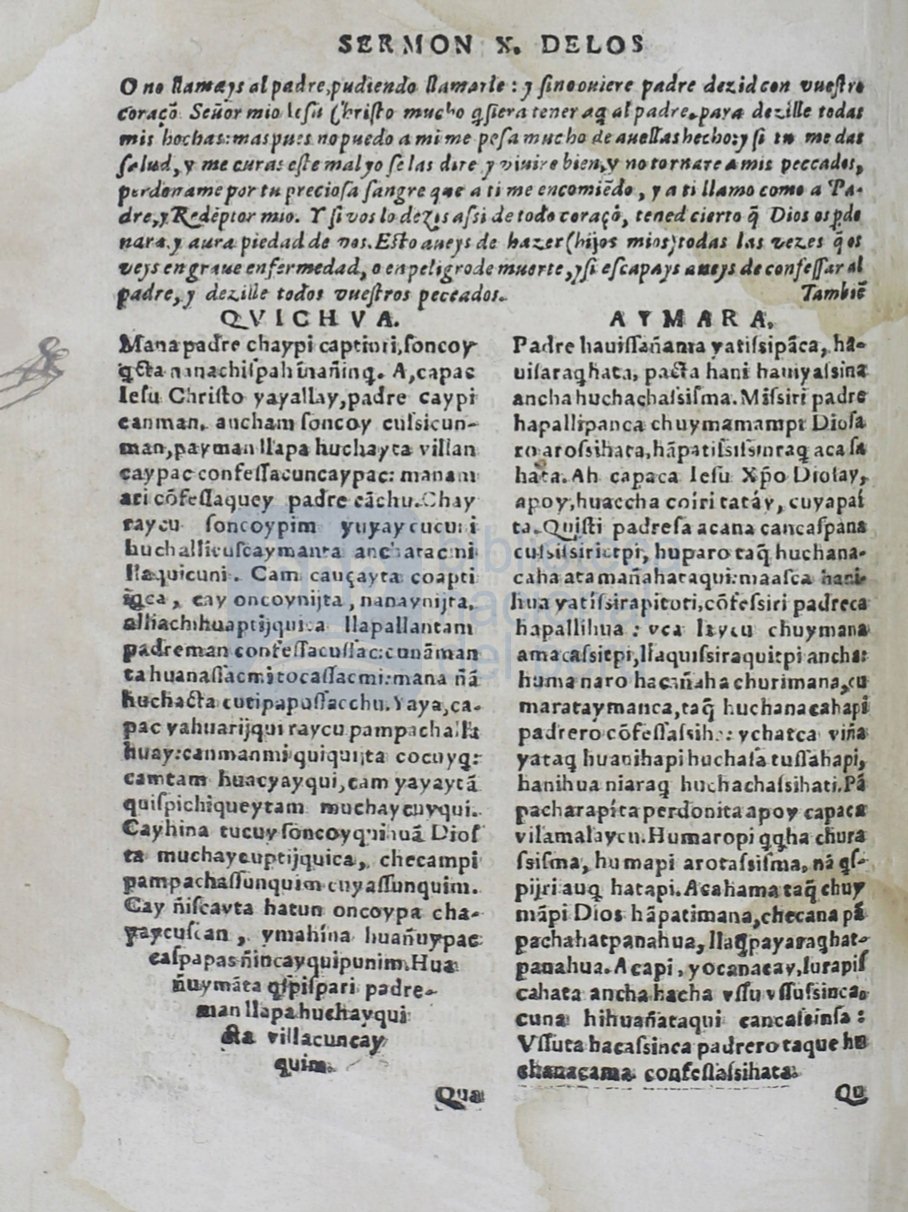 SERMON X. DELOS
O no llamays al padre, pudiendo llamarle: y sino ouiere padre dezid con vuestro
coraçõ Señor mio Iesu Christo mucho q̃siera tener aq̃ al padre, para dezille todas
mis hochas: mas pues no puedo a mi me pesa mucho de auellas hecho: y si tu me das
salud, y me curas este mal yo se las dire y viuire bien, y no tornare a mis peccados,
perdoname por tu preciosa sangre que a ti me encomiẽdo, y a ti llamo como a Pa-
dre, y Redẽptor mio. Y si vos lo dezis assi de todo coraçõ, tened cierto q̃ Dios os pdo
nara, y aura piedad de vos. Esto aueys de hazer (hijos mios) todas las vezes q̃ os
veys en graue enfermedad, o en peligro de muerte, y si escapays aueys de confessar al
padre, y dezille todos vuestros peccados. Tambiẽ
QVICHVA.
Mana padre chaypi captinri, soncoy
q̃cta nanachispa hinañinq̃. A, capac
Iesu Christo yayallay, padre caypi
canman, ancham soncoy cussicun-
man, payman llapa huchayta villan
caypac confessacuncaypac: manam
ari cõfessaquey padre cãchu. Chay
raycu soncoypim yuyaycucuni
huchallicuscaymanta anchatacmi
llaquicuni. Cam cauçayta coapti
ĩqca, cay oncoynijta, nanaynijta,
alliachihuaptijquica llapallantam
padreman confessacussac: cunãman
ta huanassacmi tocassacmi: mana ñã
huchacta cutipapussacchu. Yaya, ca-
pac yahuarijqui raycu pampachalla
huay: canmanmi quiquijta cocuyq̃:
camtam huacyayqui, cam yayaytã
quispichiqueytam muchaycuyqui.
Cay hina tucuy soncoyqui huã Dios
ta muchaycuptijquica, checampi
pampachassunquim cuyassunquim.
Cay ñiscayta hatun oncoypa cha-
yaycuscan, ymahina huañuypac
caspapas ñincayquipunim. Hua
ñuymãta q̃spispari padre-
man llapa huchayqui
cta villacuncay
quim.
Qua
AYMARA.
Padre hauissañama yatissipãca, ha-
uisaraq hata, pacta hani hauiyassina
ancha huchachassisma. Missiri padre
hapallipanca chuymamampi Diosa
ro arossihata, hãpatississinraq acasa
hata. Ah capaca Iesu Xp̃o Diosay,
apoy, huaccha coiri tatáy, cuyapat
ta. Quisti padresa acana cancaspana
cussissirictpi, huparo taq̃ huchana-
caha atamañahataqui: maasca hani-
hua yatissirapitoti, cõfessiri padreca
hapallihua: vca laycu chuymana
amacassitpi, llaquissiraquitpi ancha:
humanaro hacañaha churimana, cu
marataymanca, taq̃ huchanacahapi
padrero cõfessassiha: ychatca viña
yataq huanihapi huchasa tussahapi,
hanihua niaraq huchachassihati. Pã
pacharapita perdonita apoy capaca
vilamalaycu. Humaropi q̃q̃ha chura
ssisma, humapi arotassisma, nã q̃s-
pijri auq̃ hatapi. Acahama taq̃ chuy
mãpi Dios hãpatimana, checana pã
pachahatpanahua, llaq̃payaraq̃hat-
panahua. Acapi, yocanacay, lurapis
cahata ancha hacha vssu vssussinca,
cuna hihuañataqui cancassinsa:
Vssuta hacassinca padrero taque hu
chanacama confessassihata.
Qu